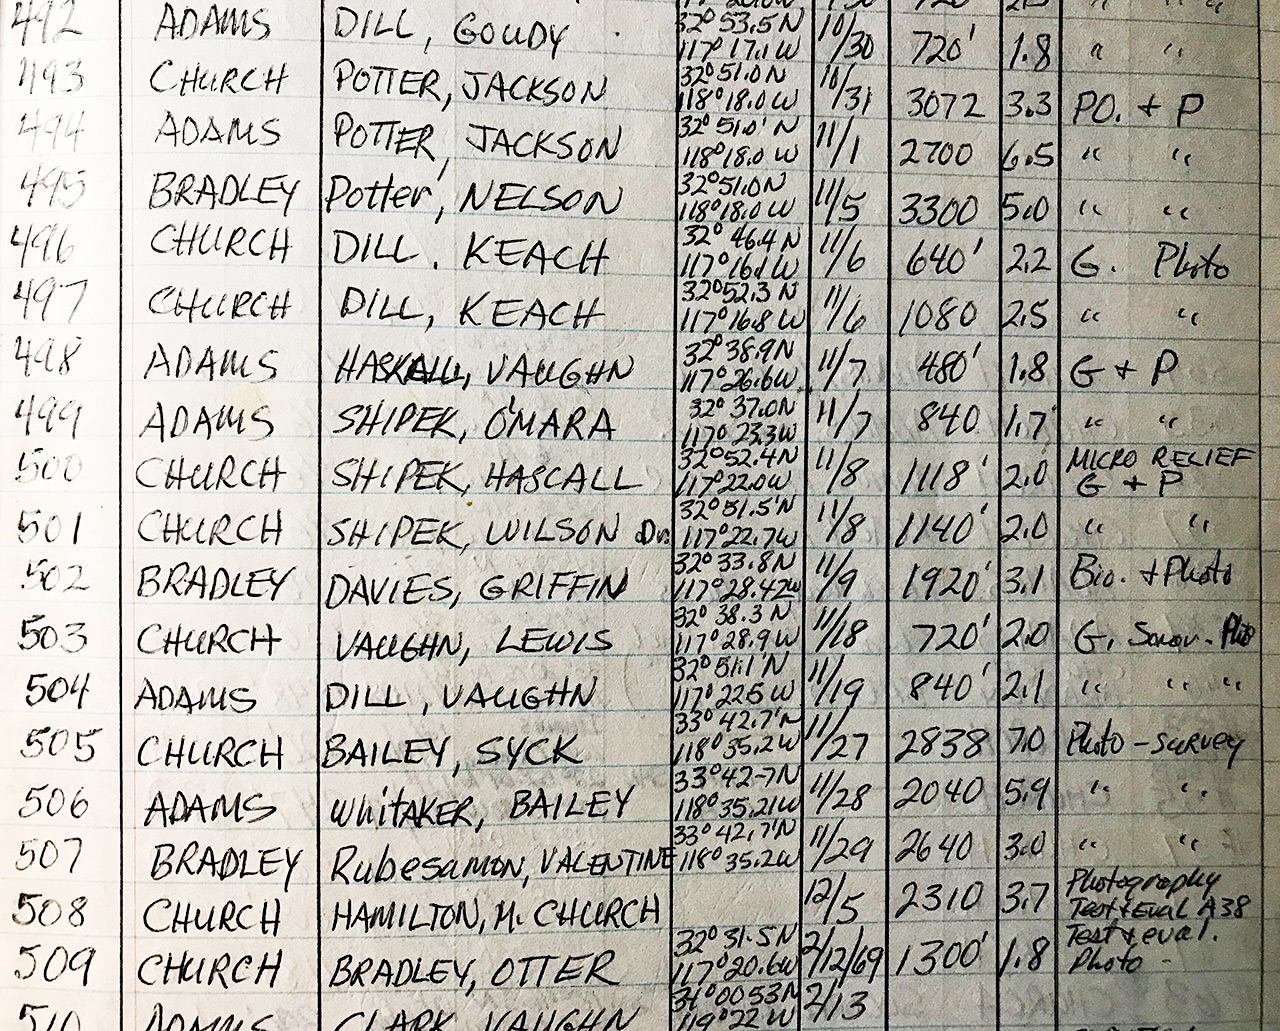 492 ADAMS DILL, GOUDY 32° 53.5N 117° 17.1 W 10/30 720' 1.8 " "
493 CHURCH POTTER, JACKSON 32° 51.0 N 118° 18.0 W 10/31 3072 3.3 PO. + P
494 ADAMS POTTER, JACKSON 32° 51.0' N 118° 18.0 W 11/1 2700 6.5 " "
495 BRADLEY Potter, NELSON 32° 51.0N 118° 18.0 W 11/5 3300 5.0 " "
496 CHURCH DILL, KEACH 32° 46.4 N 117° 16.1 W 11/6 640' 2.2 G. Photo
497 CHURCH DILL, KEACH 32° 52.3 N 117° 16.8 W 11/6 1080 2.5 " "
498 ADAMS HASKALL, VAUGHN 32° 38.9N 117° 26.6W 11/7 480' 1.8 G + P
499 ADAMS SHIPEK, O'MARA 32° 37.0N 117° 23.3W 11/7 840 1.7 " "
500 CHURCH SHIPEK, HASCALL 32° 52.4N 117° 22.0W 11/8 1118' 2.0 MICRO RELIEF G + P
501 CHURCH SHIPEK, WILSON 32° 51.5'N 117° 22.7W 11/8 1140' 2.0 " "
502 BRADLEY DAVIES, GRIFFIN 32° 33.8N 117° 28.42W 11/9 1920' 3.1 Bio. + Photo
503 CHURCH VAUGHN, LEWIS 32° 38.3 N 117° 28.9 W 11/18 720' 2.0 G,
504 ADAMS DILL, VAUGHN 32° 51.1'N 117° 22.5 W 11/19 840' 2.1 " " "
505 CHURCH BAILEY, SYCK 33° 42.7'N 118° 35.2W 11/27 2838 7.0 Photo - SURVEY
506 ADAMS WhiTAKER, BAILEY 33° 42-7N 118° 35.21W 11/28 2040 5.9 " "
507 BRADLEY Rubesamon, VALENTINE 33° 42.7'N 118° 35.2W 11/29 2640 3.0 " "
508 CHURCH HAMILTON, M. CHURCH 12/5 2310 3.7 Photography Test & Eval A38
509 CHURCH BRADLEY, OTTER 32° 31.5N 117° 20.6W 2/12/69 1300' 1.8 Test & eval. Photo -
510 ADAMS CLARK, VAUGHN 119° 22 W 2/13